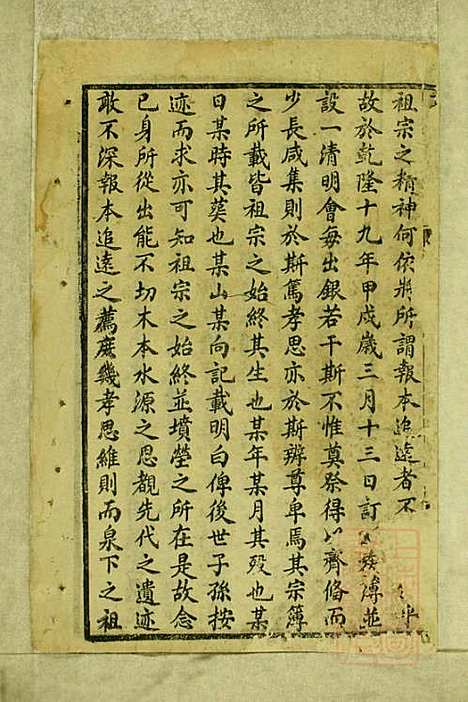 祖宗之精神何依將所謂報本追遠者不
故於乾隆十九年甲戌歲三月十三日訂族傳並
設一清明會每出銀若干斯不惟奠祭得以齊俻而
少長咸集則於斯篤孝思亦於斯辨尊卑焉其宗簿
之所載皆祖宗之始終其生也某年某月其歿也某
日某時其葬也某山某向記載明白俾後世子孫按
迹而求亦可知祖宗之始終並墳塋之所在是故念
已身所從出能不切木本水源之思覩先代之遺迹
敢不深報本追遠之薦庶幾孝思維則而泉下之祖